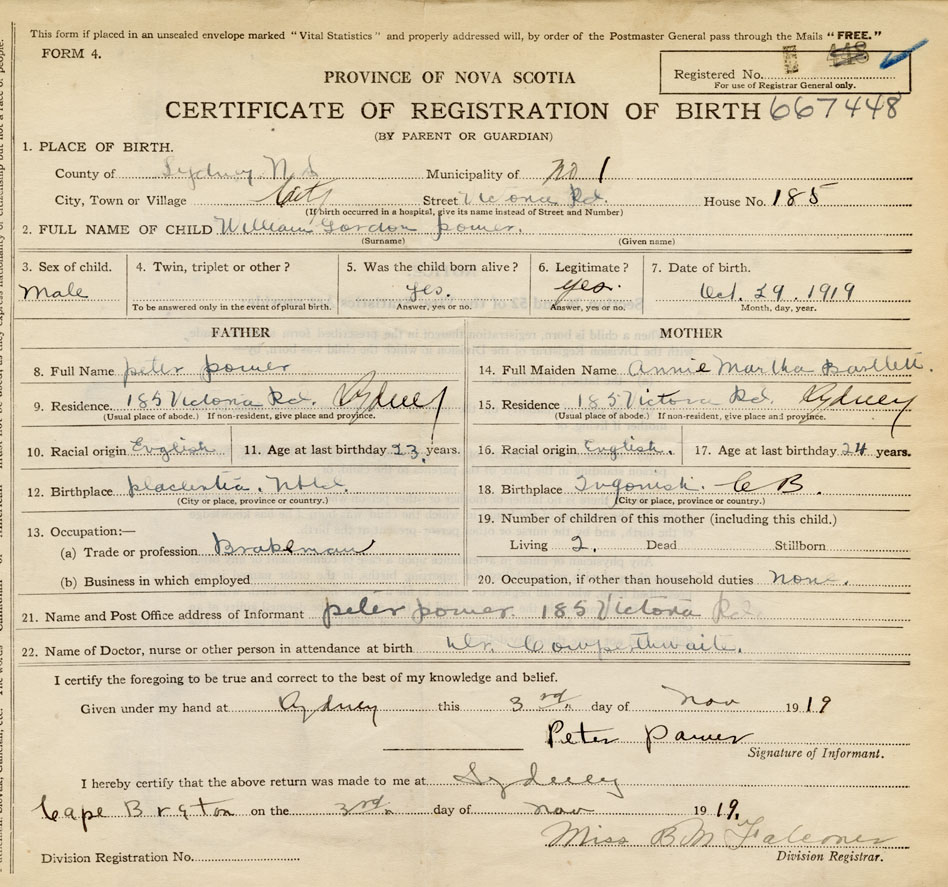 This form if placed in an unsealed envelope marked "Vital Statistics" and properly addressed will, by order of the Postmaster General pass through the Mails "FREE."
FORM 4.
PROVINCE OF NOVA SCOTIA
Registered No. 448
For use of Registrar General only.
CERTIFICATE OF REGISTRATION OF BIRTH 667448
(BY PARENT OR GUARDIAN)
1. PLACE OF BIRTH.
County of Sydney N.S Municipality of No 1
City, Town or Village City Street Victoria Rd. House No. 185
(If birth occurred in a hospital, give its name instead of Street and Number)
2. FULL NAME OF CHILD William Gordon power.
(Surname) (Given name)
3. Sex of child. 4. Twin, triplet or other? 5. Was the child born alive? 6. Legitimate? 7. Date of birth.
Male yes. yes. Oct. 29. 1919
To be answered only in the event of plural birth. Answer, yes or no. Answer, yes or no. Month, day, year.
FATHER MOTHER
8. Full Name peter power 14. Full Maiden Name Annie Martha Bartlett.
9. Residence. 185 Victoria Rd. Sydney 15. Residence 185 Victoria Rd. Sydney
(Usual place of abode.) If non-resident, give place and province. (Usual place of abode.) If non-resident, give place and province.
10. Racial origin English 11. Age at last birthday 23. years. 16. Racial origin English. 17. Age at last birthday 24 years.
12. Birthplace placentia. Nfld. 18. Birthplace Ingonish. C B.
(City or place, province or country.) (City or place, province or country.)
13. Occupation:— 19. Number of children of this mother (including this child.)
(a) Trade or profession Brakeman Living 2. Dead Stillborn
(b) Business in which employed 20. Occupation, if other than household duties none.
21. Name and Post Office address of Informant peter power. 185 Victoria Rd.
22. Name of Doctor, nurse or other person in attendance at birth Dr. Cowperthwaite.
I certify the foregoing to be true and correct to the best of my knowledge and belief.
Given under my hand at Sydney this 3rd day of Nov 1919
Peter Power
Signature of Informant.
I hereby certify that the above return was made to me at Sydney
Cape Breton on the 3rd day of Nov 1919.
Miss B M Falconer
Division Registration No. Division Registrar.